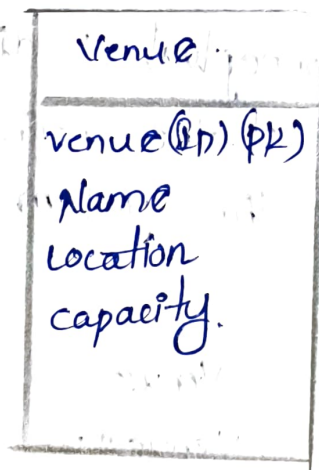 Venue
venue(ID) (PK)
Name
Location
capacity.